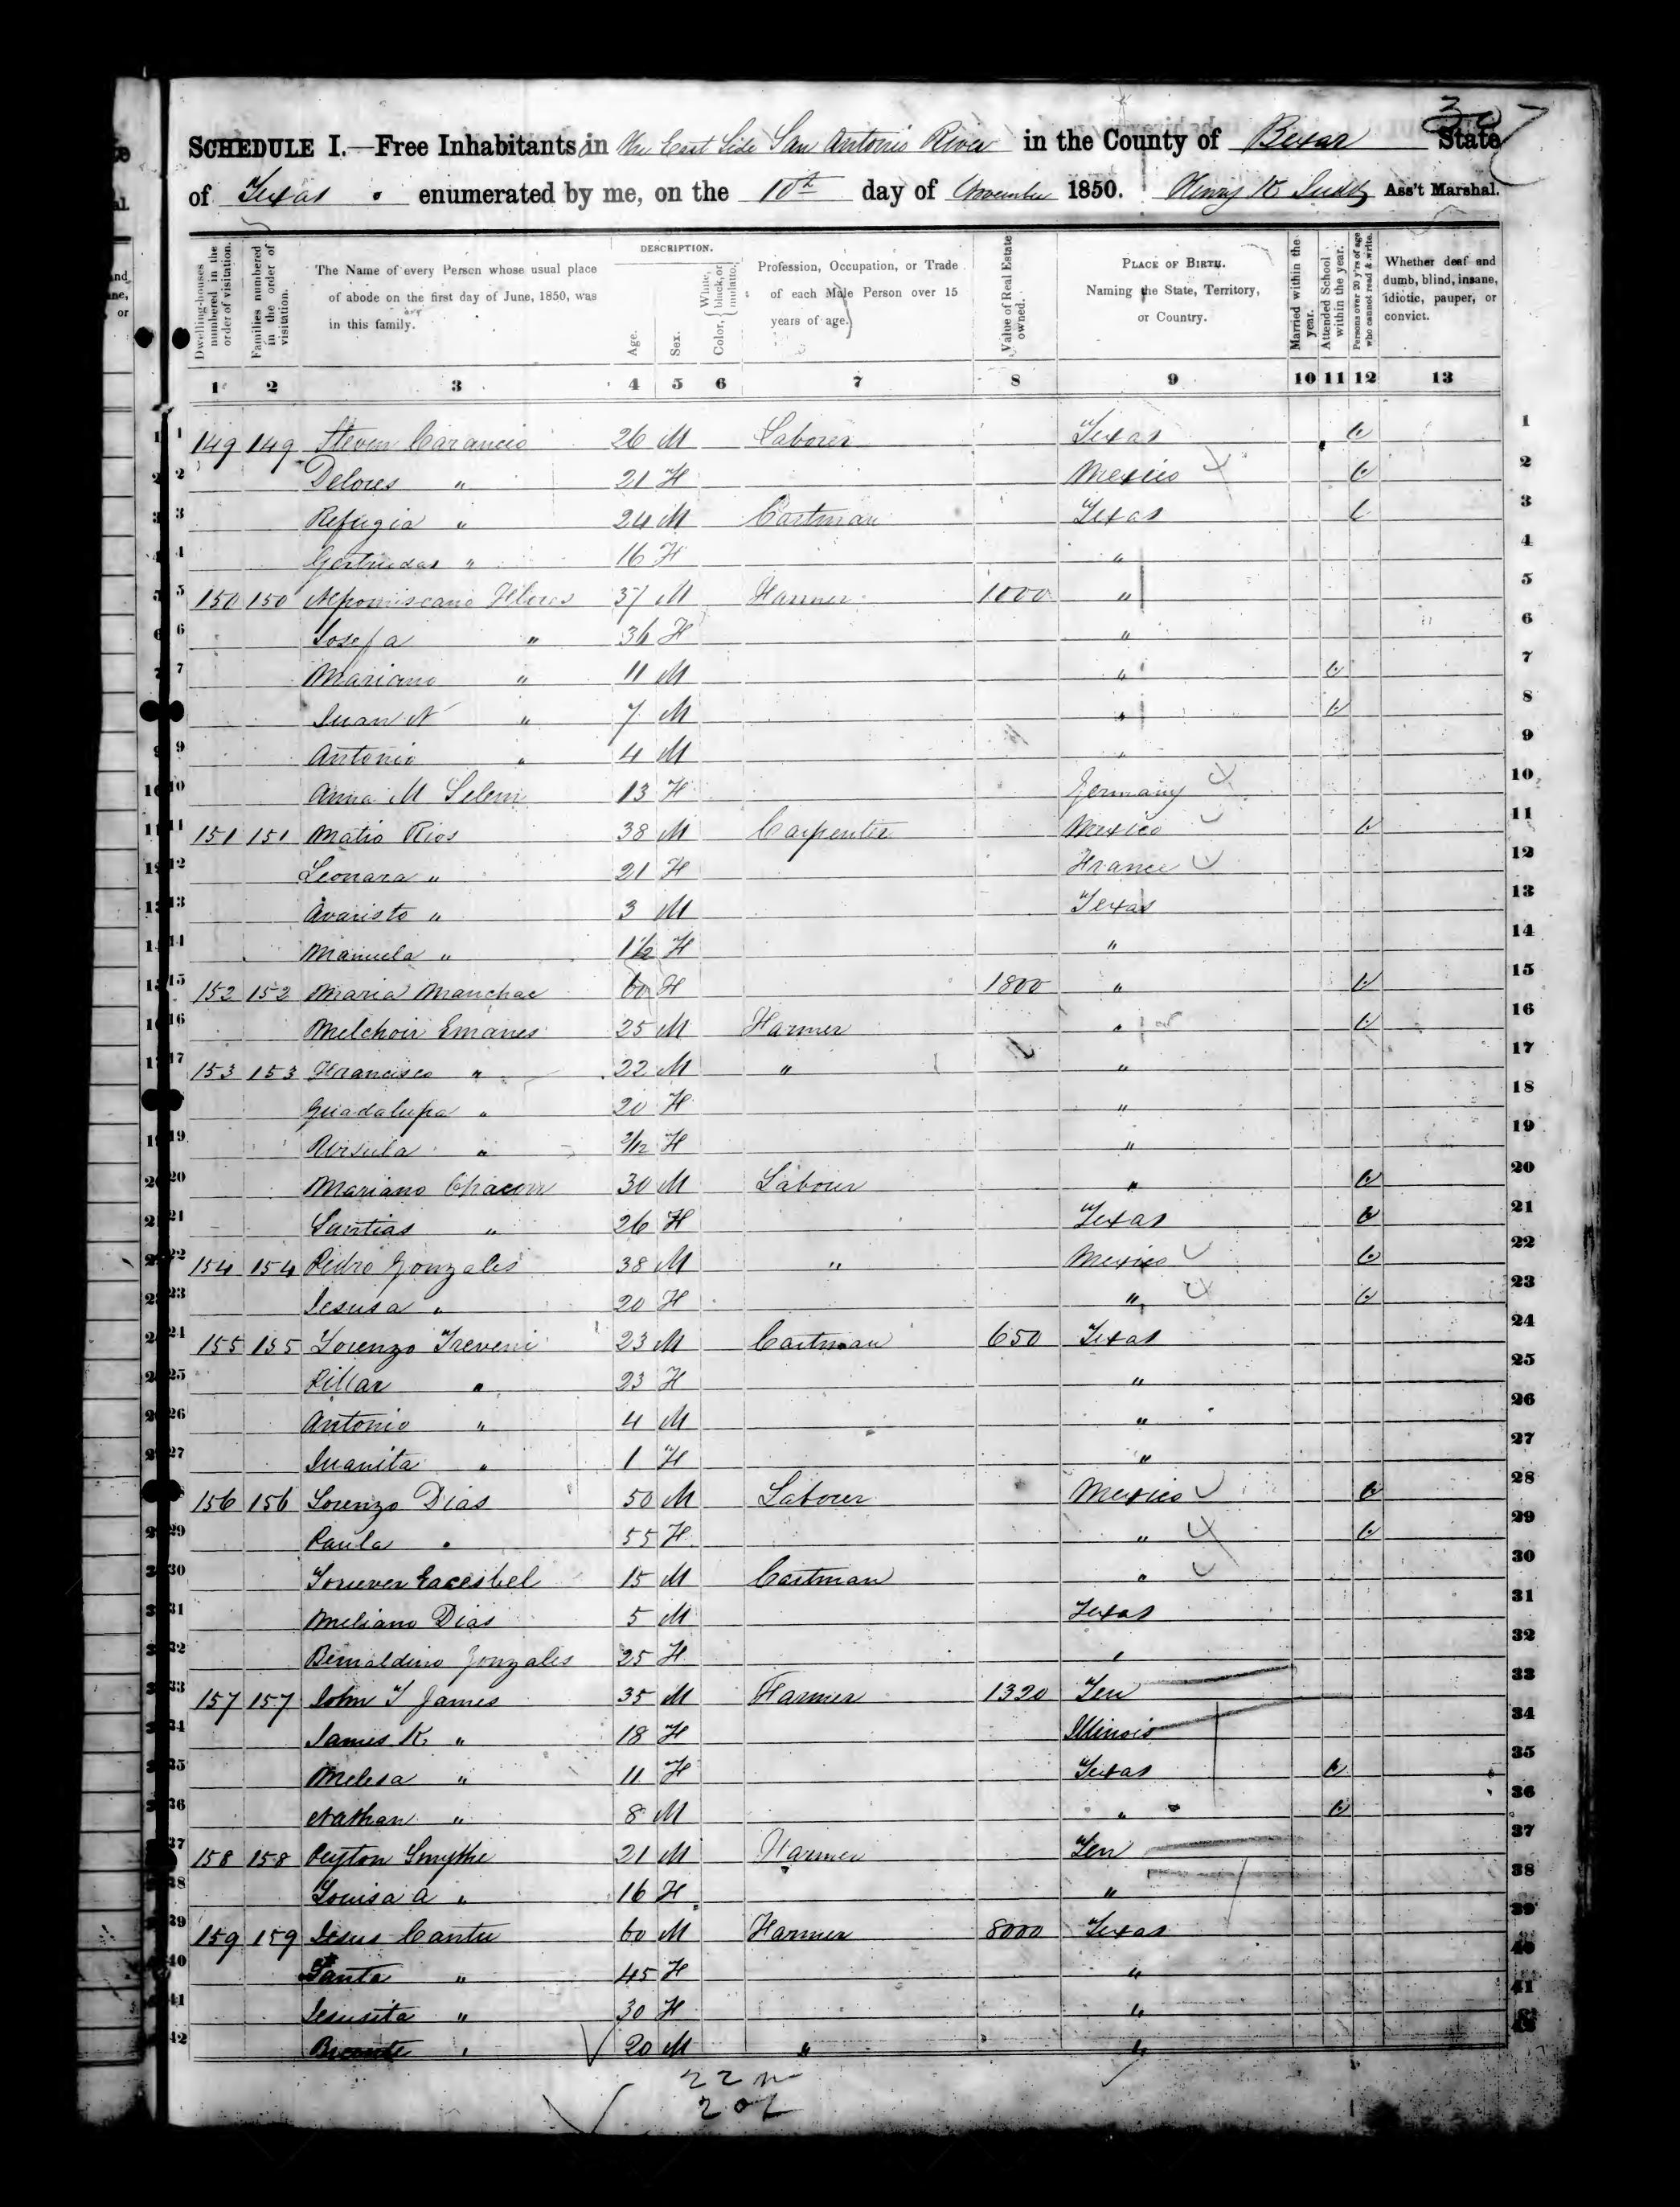 307
SCHEDULE I.—Free Inhabitants in the East Side San Antonio River in the County of Bexar State
of Texas enumerated by me, on the 10th day of November 1850. Henry K Ass't Marshal.
Dwelling-houses numbered in the order of visitation.
Families numbered in the order of visitation.
The Name of every Person whose usual place of abode on the first day of June, 1850, was in this family.
DESCRIPTION.
Age.
Sex.
Color, { White, black, or mulatto.
Profession, Occupation, or Trade of each Male Person over 15 years of age.
Value of Real Estate owned.
PLACE OF BIRTH. Naming the State, Territory, or Country.
Married within the year.
Attended School within the year.
Persons over 20 y'rs of age who cannot read & write.
Whether deaf and dumb, blind, insane, idiotic, pauper, or convict.
1 2 3 4 5 6 7 8 9 10 11 12 13
1 149 149 Steven Carancio 26 M Laborer Texas 1
2 Delores " 21 F Mexico 2
3 Refugia " 24 M Cartman Texas 3
4 Gertrudas " 16 F " 4
5 150 150 Nepomiscano Flores 37 M Farmer 1000 " 5
6 Josefa " 36 F " 6
7 Mariano " 11 M " 7
8 Juan N " 7 M " 8
9 Antonio " 4 M " 9
10 Anna M Selem 13 F Germany 10
11 151 151 Matio Rios 38 M Carpenter Mexico 11
12 Leonara " 21 F France 12
13 Avaristo " 3 M Texas 13
14 Manuela " 1½ F " 14
15 152 152 Maria Manchac 60 F 1800 " 15
16 Melchoir Emanes 25 M Farmer " 16
17 153 153 Francisco " 22 M " " 17
18 Guadalupa " 20 F " 18
19 Ursula " 2/12 F " 19
20 Mariano Chacon 30 M Labourer " 20
21 Santias " 26 F Texas 21
22 154 154 Pedro Gonzales 38 M " Mexico 22
23 Jesusa " 20 F " 23
24 155 155 Lorenzo Treveni 23 M Cartman 650 Texas 24
25 Pillar " 23 F " 25
26 Antonio " 4 M " 26
27 Juanita " 1 F " 27
28 156 156 Lorenzo Dias 50 M Laborer Mexico 28
29 Paula " 55 F " 29
30 15 M Cartman " 30
31 Meliano Dias 5 M Texas 31
32 Bernaldino Gonzales 25 F " 32
33 157 157 John T James 35 M Farmer 1320 Ten 33
34 James K " 18 F Illinois 34
35 Melesa " 11 F Texas 35
36 Nathan " 8 M " 36
37 158 158 Peyton Smythe 21 M Farmer Ten 37
38 Louisa A " 16 F " 38
39 159 159 Jesus Cantu 60 M Farmer 8000 Texas 39
40 Santa " 45 F " 40
41 Jesusita " 30 F " 41
42 " 20 M " " 42
22 m
20 f